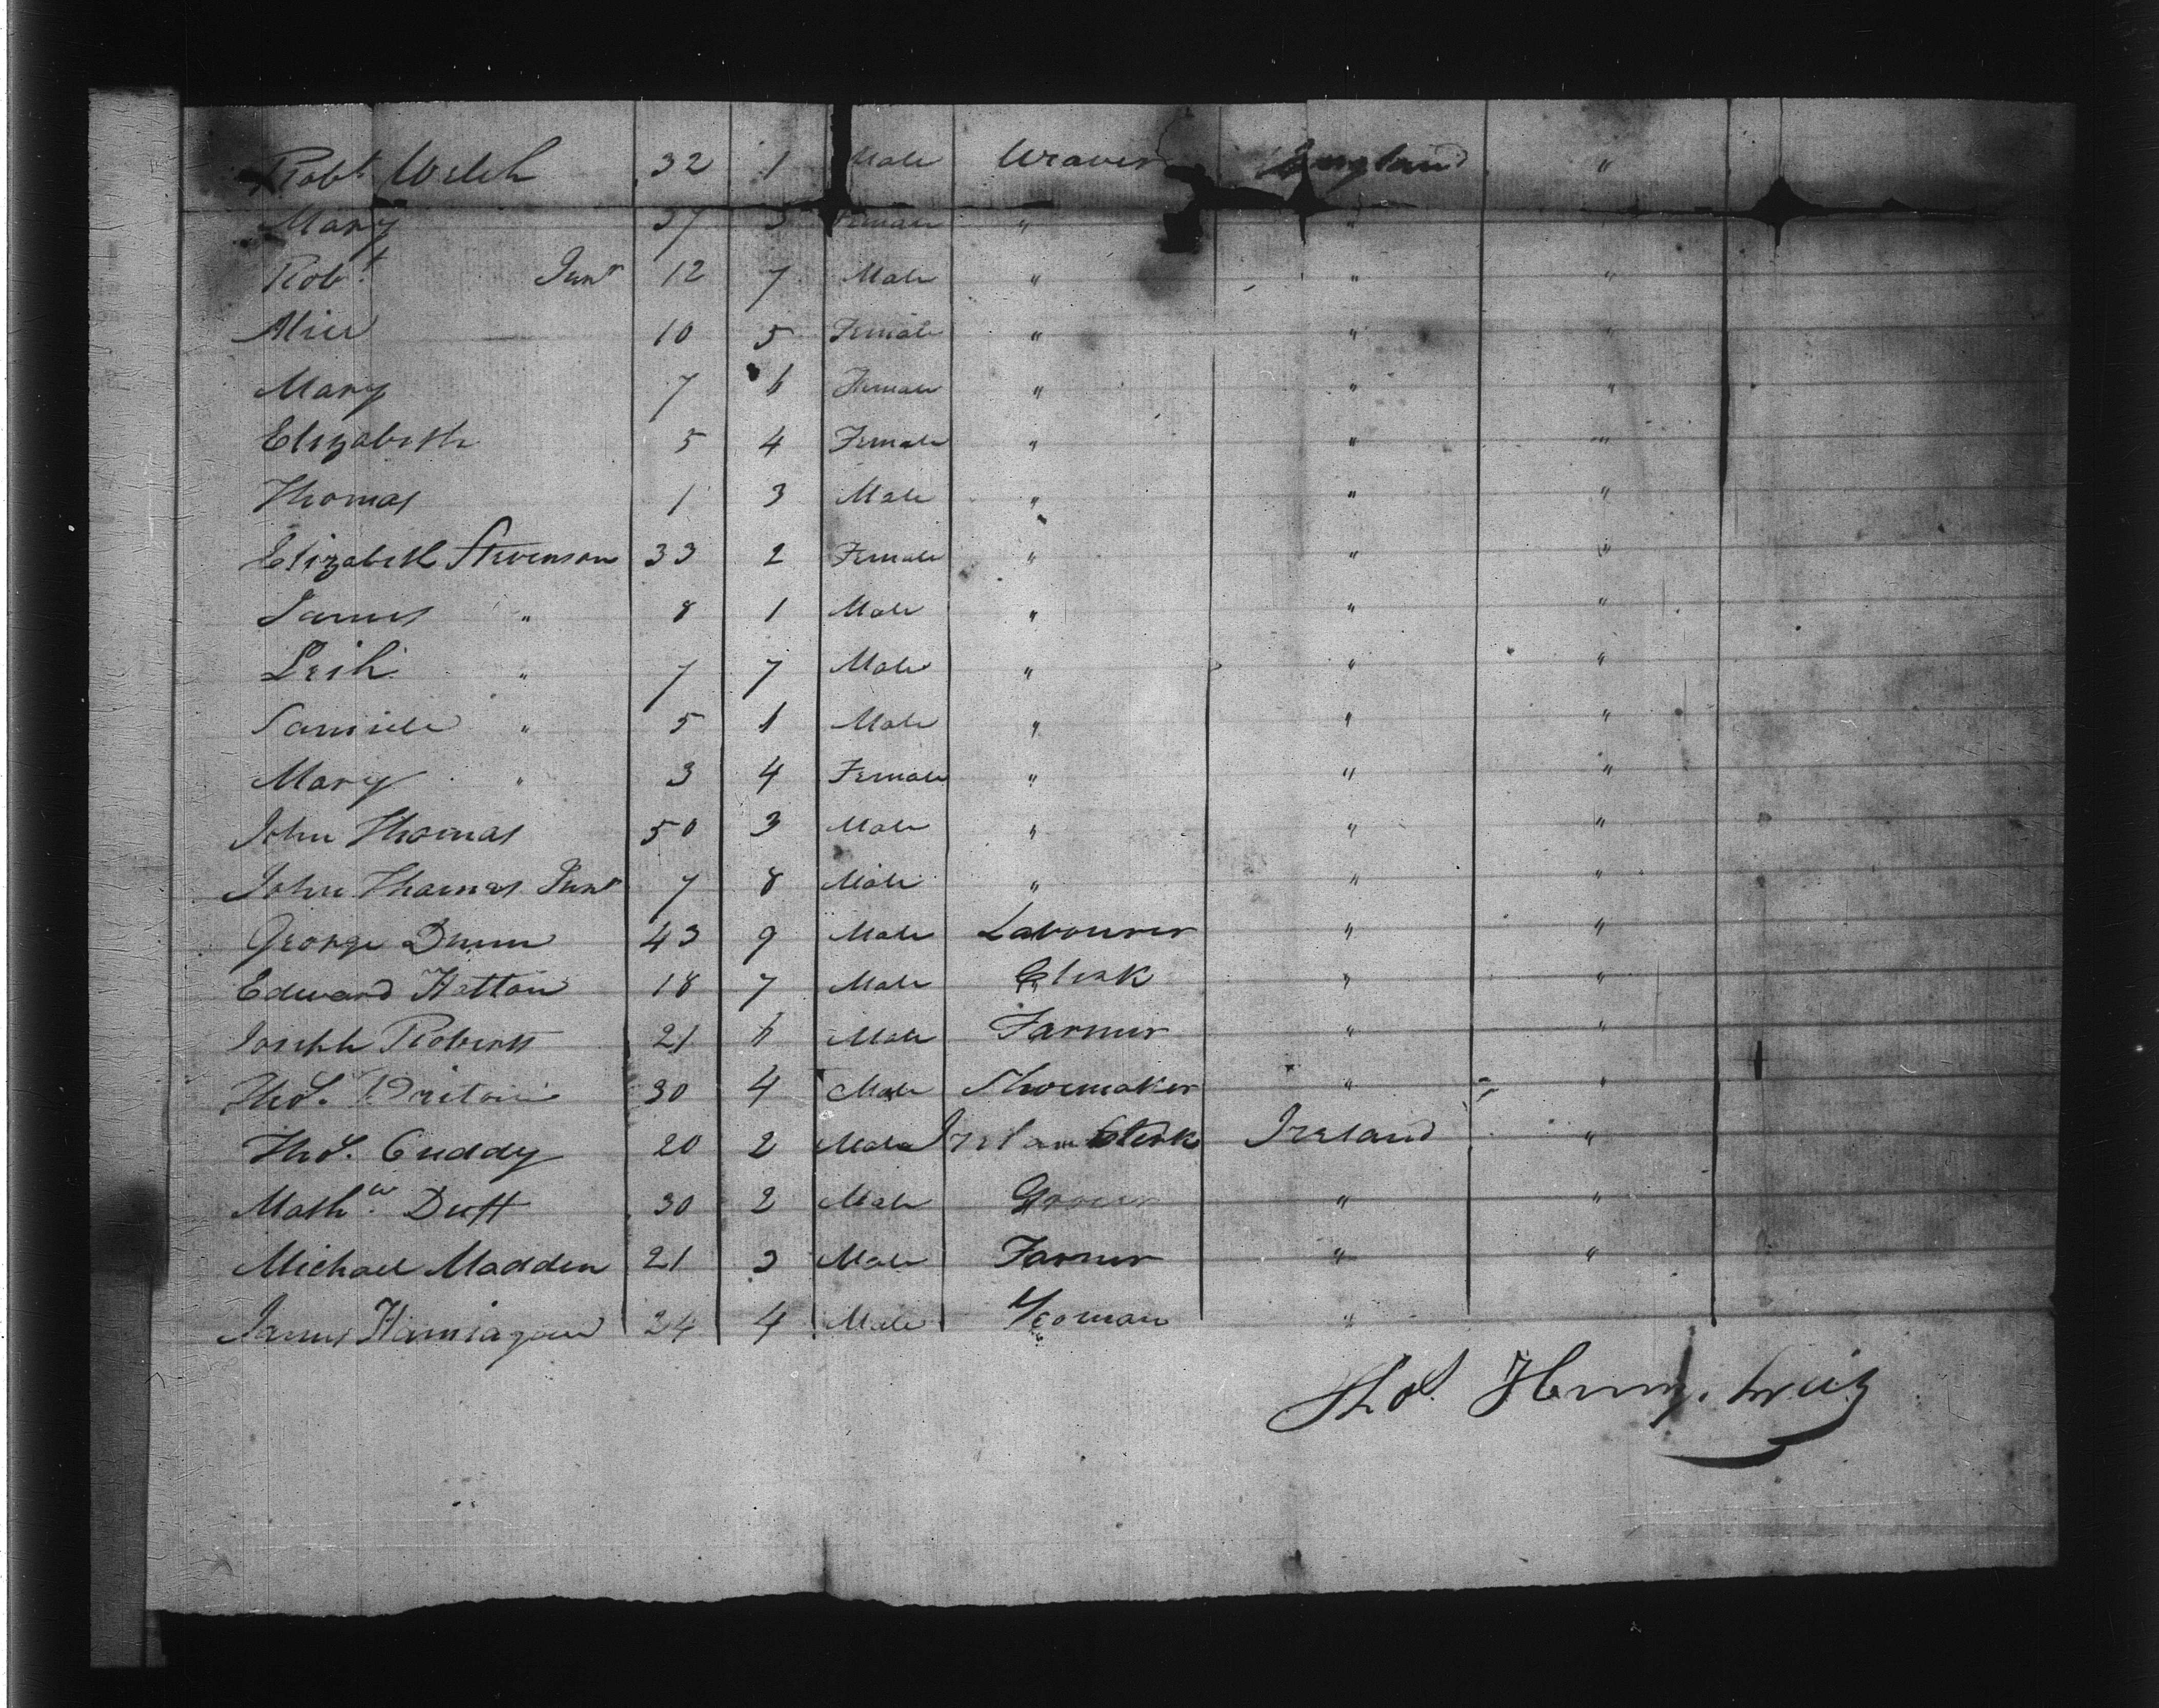 Robt. Welch 32 1 Male Weaver England "
Mary 37 3 Female " " "
Robt. Junr 12 7 Male " " "
Alice 10 5 Female " " "
Mary 7 6 Female " " "
Elizabeth 5 4 Female " " "
Thomas 1 3 Male " " "
Elizabeth Stevenson 33 2 Female " " "
James " 8 1 Male " " "
" 7 7 Male " " "
Samuel " 5 1 Male " " "
Mary " 3 4 Female " " "
John Thomas 50 3 Male " " "
John Thomas Junr 7 8 Male " " "
George Dunn 43 9 Male Labourer " "
Edward Hatton 18 7 Male Clerk " "
Joseph Roberts 21 6 Male Farmer " "
Thos. 30 4 Male Shoemaker " "
Thos. Cuddy 20 2 Male Clerk Ireland "
Mathw. Duff 30 2 Male Grocer " "
Michael Madden 21 3 Male Farmer " "
James 24 4 Male Yeoman "
Thos.